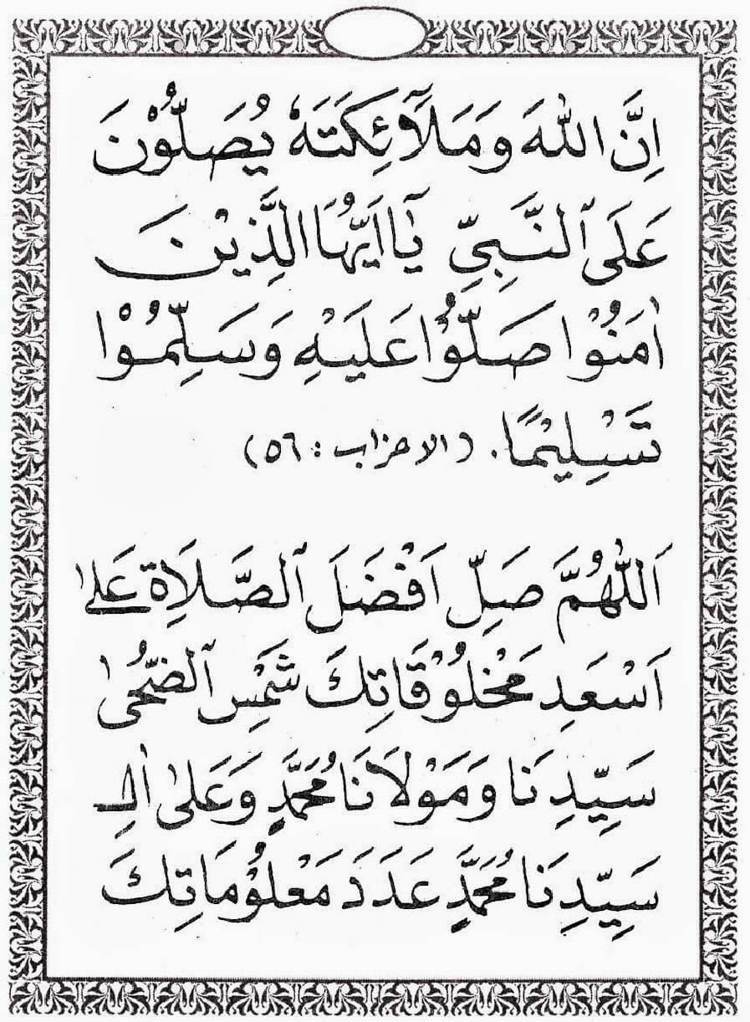 اِنَّ اللهَ وَمَلَآئِكَتَهٗ يُصَلُّوْنَ
عَلَى النَّبِيِّ يٰٓاَيُّهَا الَّذِيْنَ
اٰمَنُوْا صَلُّوْا عَلَيْهِ وَسَلِّمُوْا
تَسْلِيْمًا. (الاحزاب : ٥٦)
اَللّٰهُمَّ صَلِّ اَفْضَلَ الصَّلَاةِ عَلٰى
اَسْعَدِ مَخْلُوْقَاتِكَ شَمْسِ الضُّحٰى
سَيِّدِنَا وَمَوْلَانَا مُحَمَّدٍ وَعَلٰى اٰلِ
سَيِّدِنَا مُحَمَّدٍ عَدَدَ مَعْلُوْمَاتِكَ